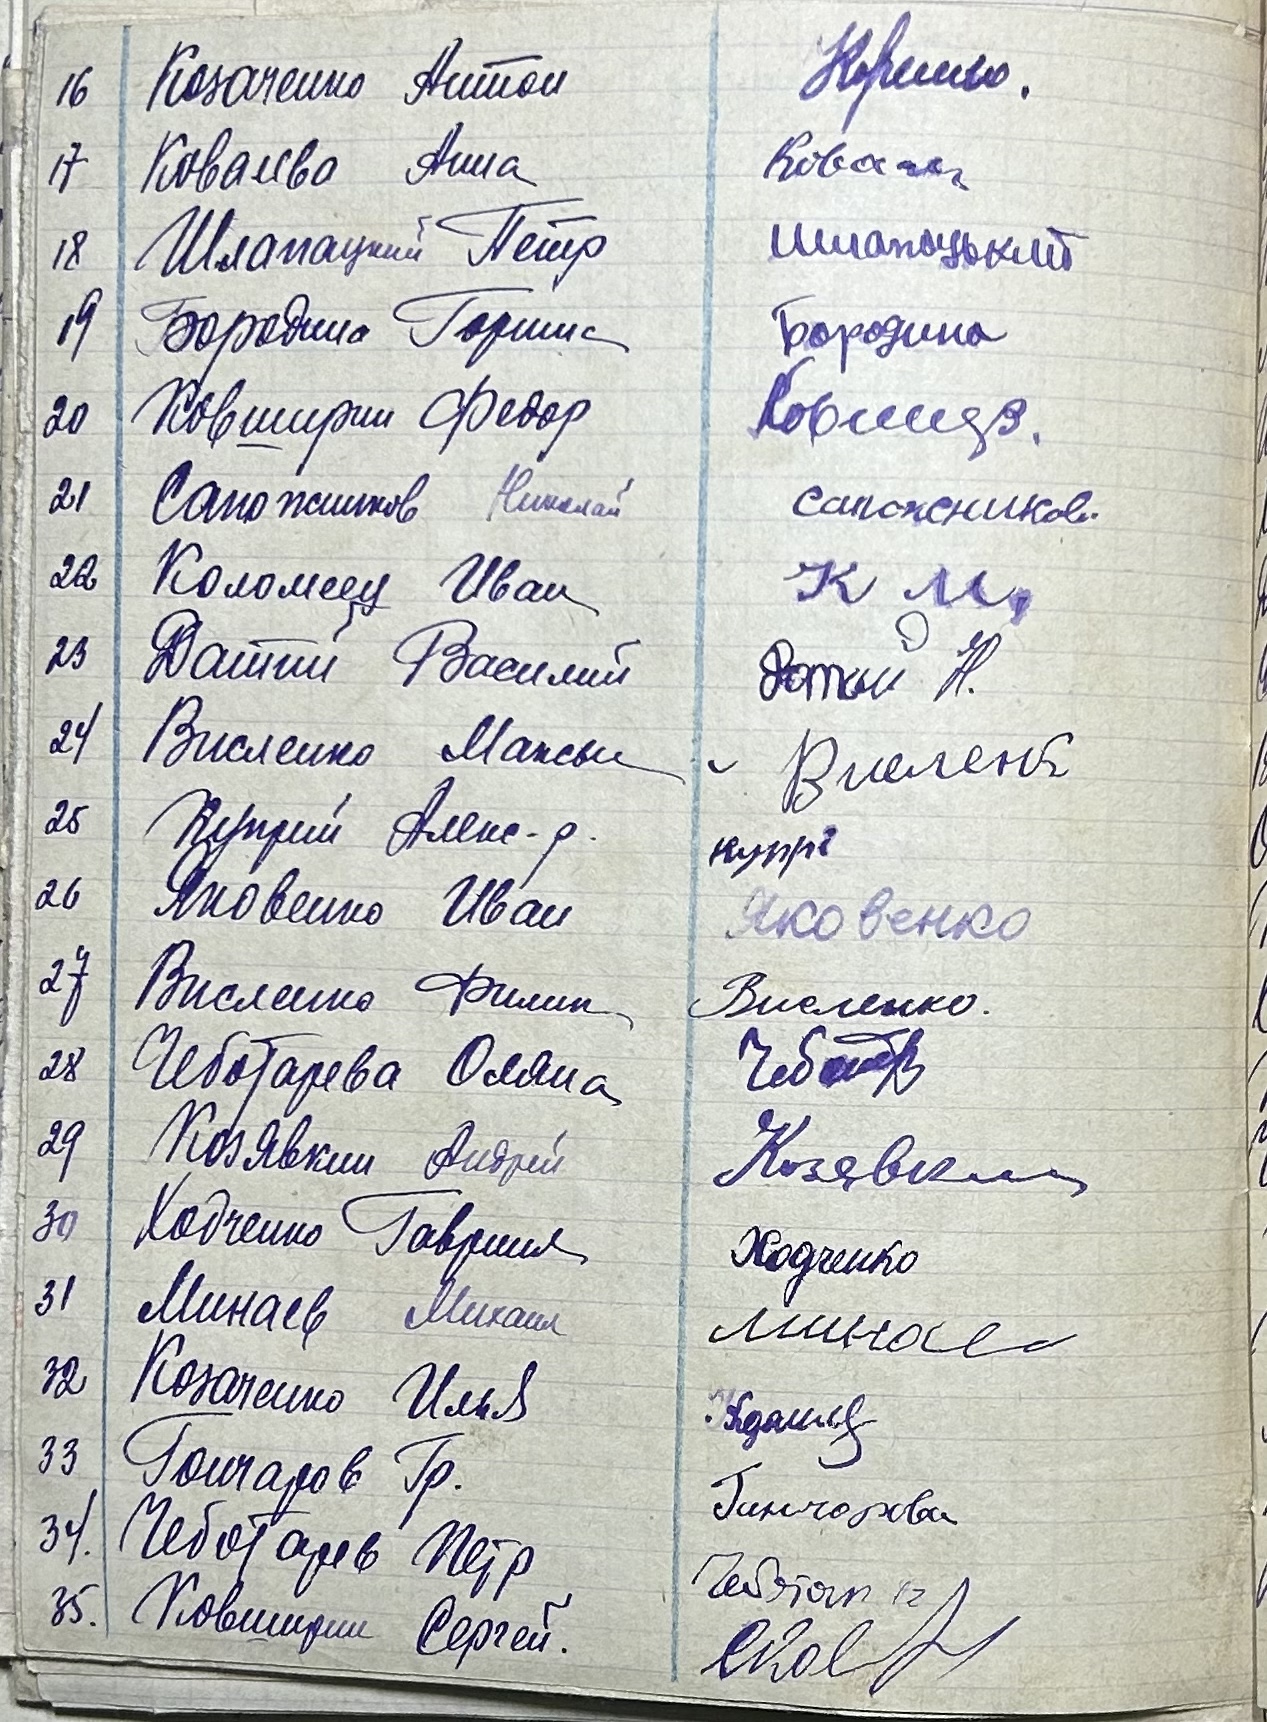 16 Козаченко Антон
17 Ковалева Анна Ковал
18 Шлапацкий Петр Шлапоцький
19 Бородина Горпина Бородина
20 Ковширин Федор
21 Сапожников Николай сапожников
22 Коломеец Иван К М.
23 Датий Василий Н.
24 Висленко Максим Висленк
25 Куприй Алекс-р. купрі
26 Яковенко Иван Яковенко
27 Висленко Филип Висленко.
28 Чеботарева Оляна
29 Козявкин Андрей Козявкин
30 Ходченко Гавриил Ходченко
31 Минаев Михаил Минаев
32 Козаченко Илья
33 Гончаров Гр. Гончарова
34. Чеботарев Петр
35. Ковширин Сергей.